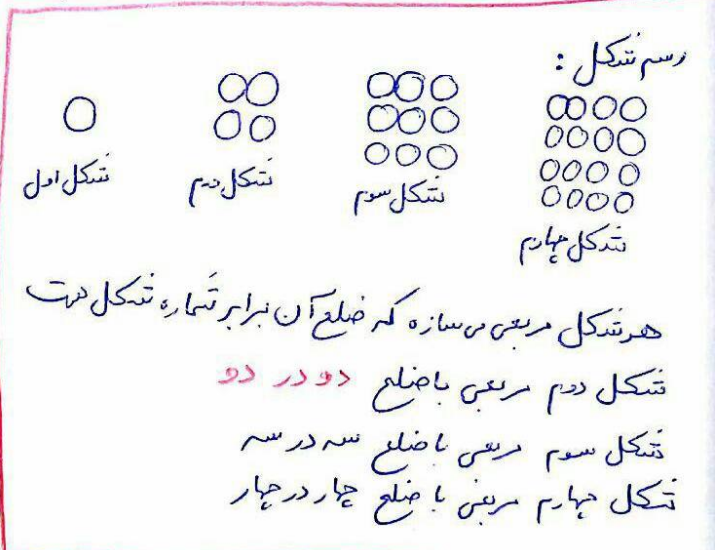 رسم شکل :
شکل اول
شکل دوم
شکل سوم
شکل چهارم
هر شکل مربعی می سازه که ضلع آن برابر شماره شکل هست
شکل دوم مربعی با ضلع دو در دو
شکل سوم مربعی با ضلع سه در سه
شکل چهارم مربعی با ضلع چهار در چهار